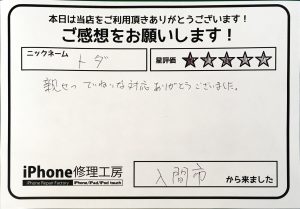 本日は当店をご利用頂きありがとうございます!
ご感想をお願いします!
ニックネーム トダ 星評価 ★★★★★
親せつ ていねいな対応 ありがとうございました。
iPhone修理工房
iPhone Repair Factory iPhone/iPad/iPod touch
入間市 から来ました